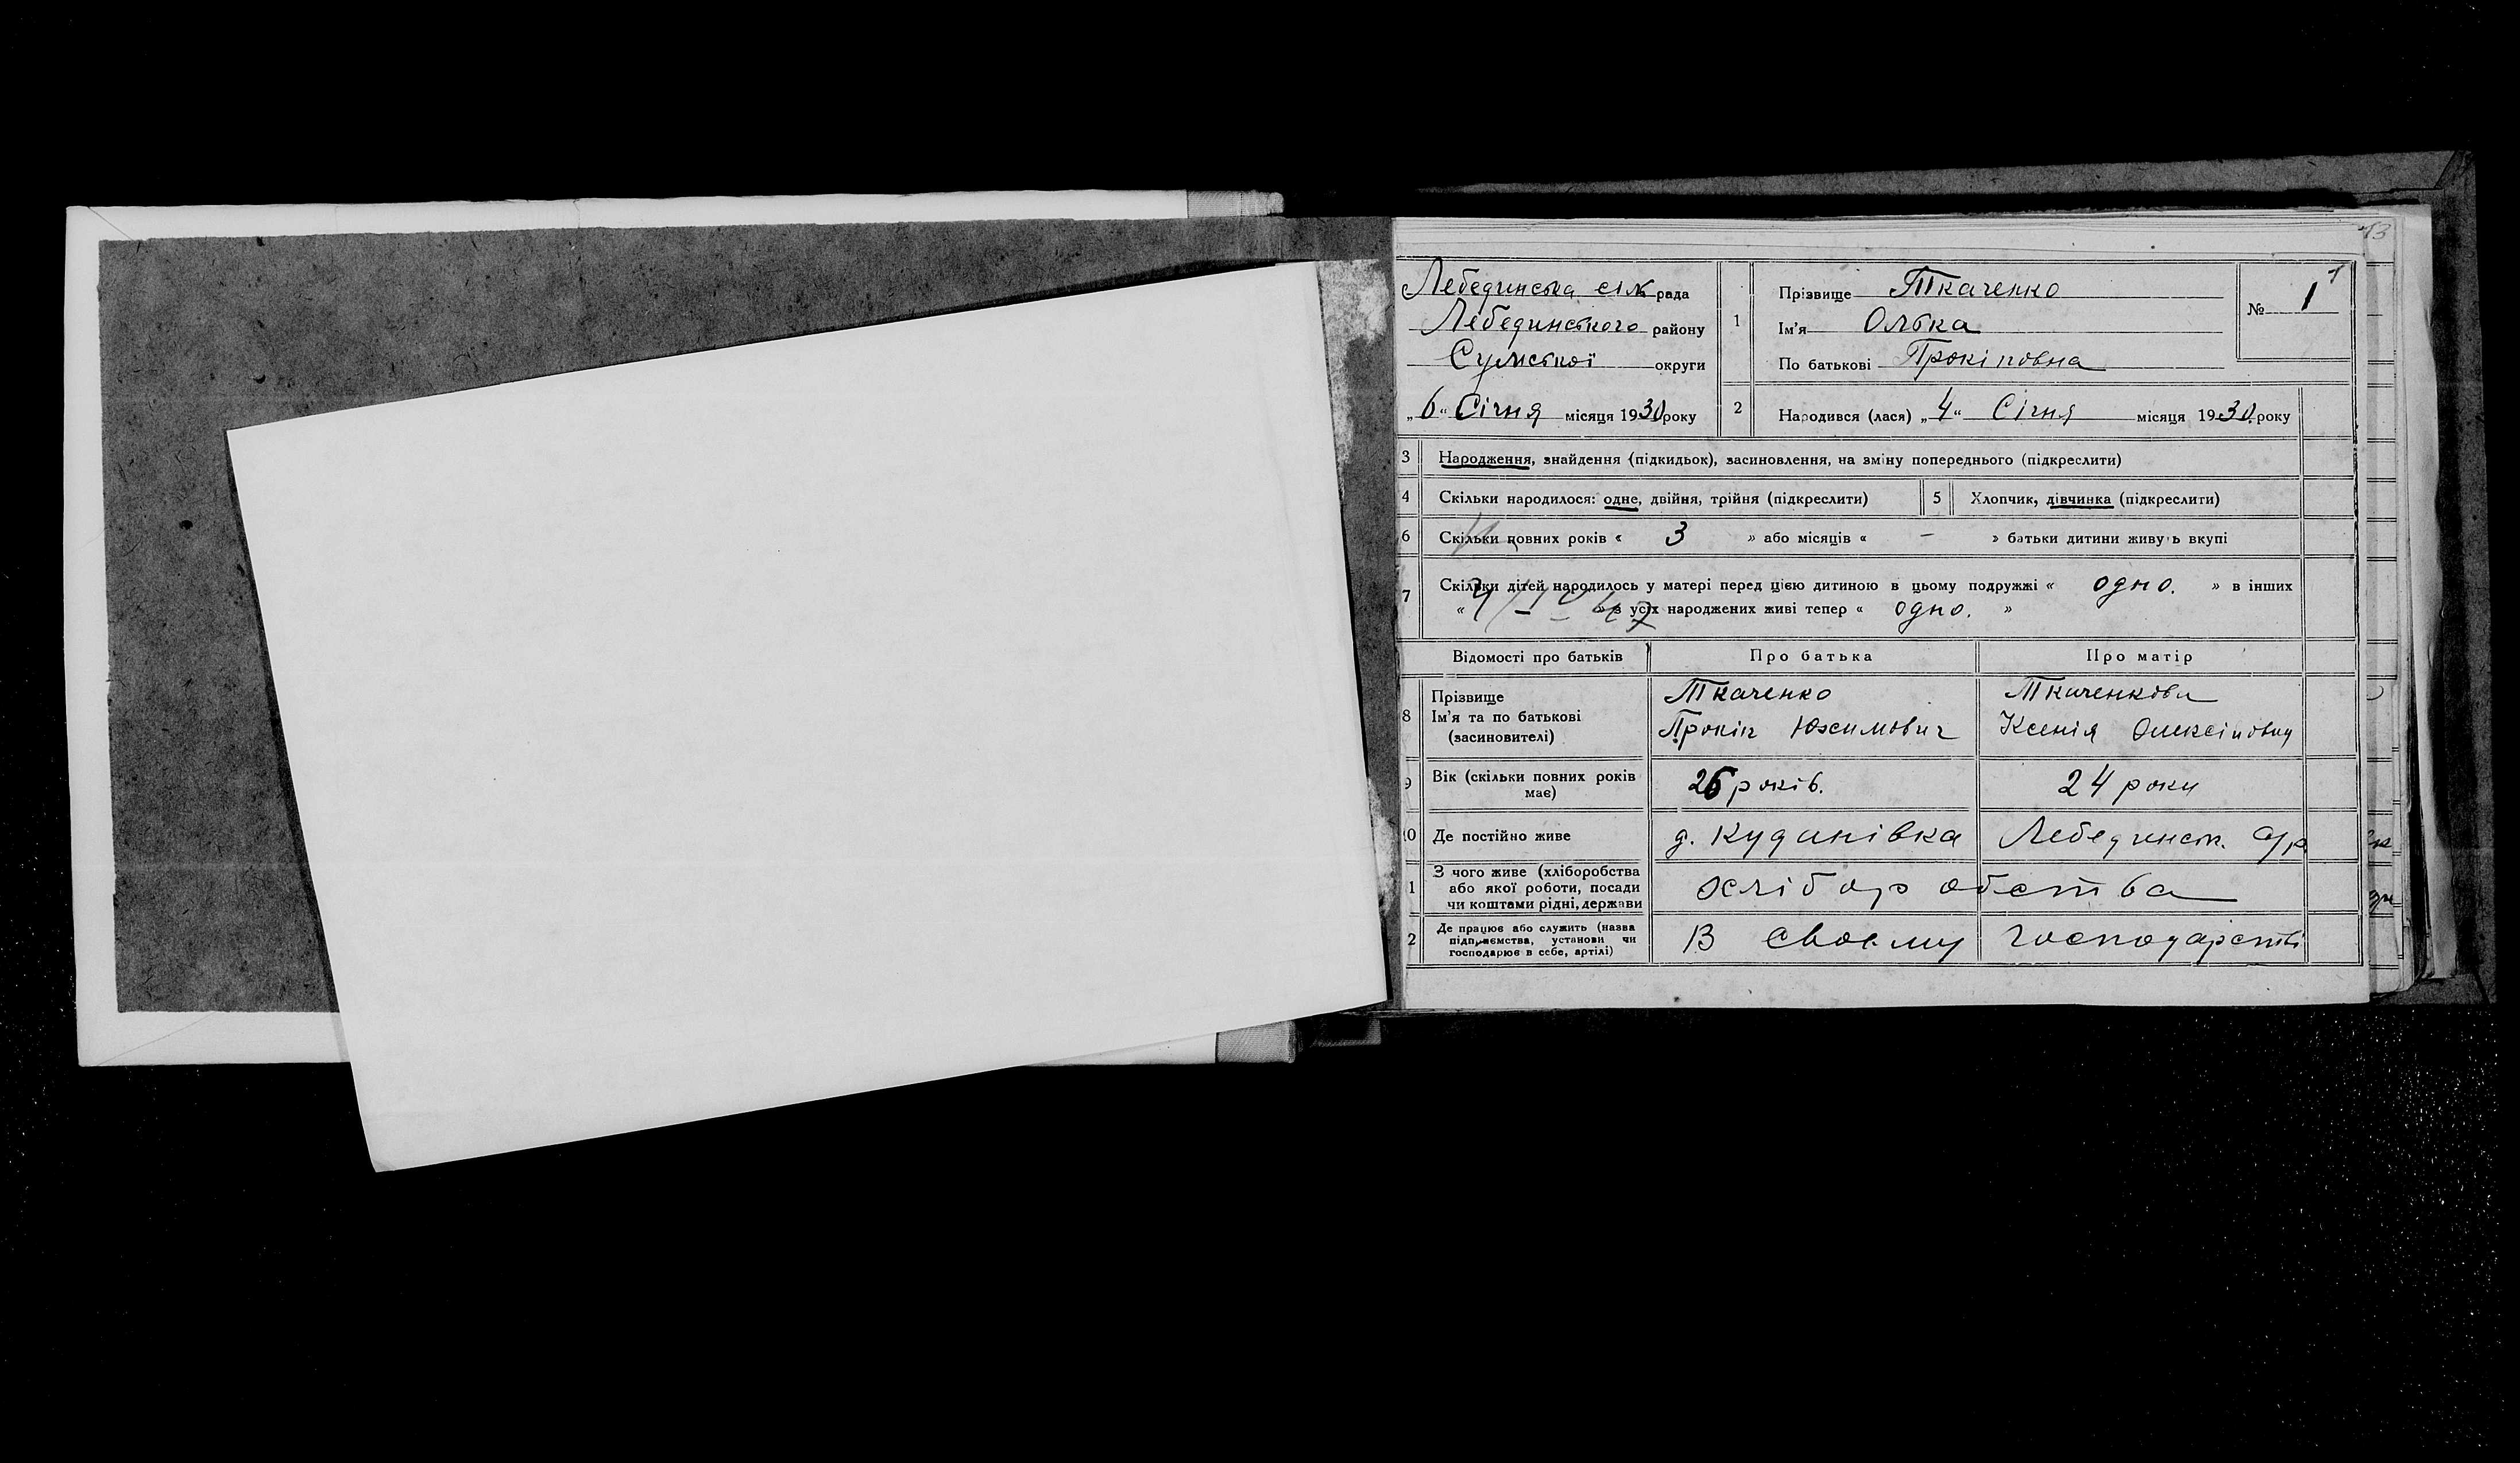 Лебединська сільрада
Лебединського району
Сумської округи
„6“ Січня місяця 1930 року
1
Прізвище Ткаченко
Ім'я Олька
По батькові Прокіповна
№ 1
2
Народився (лася) „4“ Січня місяця 1930 року
3 Народження, знайдення (підкидьок), засиновлення, на зміну попереднього (підкреслити)
4 Скільки народилося: одне, двійня, трійня (підкреслити)
5 Хлопчик, дівчинка (підкреслити)
6 Скільки повних років « 3 » або місяців « – » батьки дитини живуть вкупі
7 Скільки дітей народилось у матері перед цією дитиною в цьому подружжі « одно. » в інших
« » з усіх народжених живі тепер « одно. »
Відомості про батьків Про батька Про матір
8 Прізвище
Ім'я та по батькові
(засиновителі)
Ткаченко
Прокіп Юхимович
Ткаченкова
Ксенія Олексіповна
9 Вік (скільки повних років
має)
26 років.
24 роки
10 Де постійно живе д. Куданівка Лебединськ. с/р
1 З чого живе (хліборобства
або якої роботи, посади
чи коштами рідні, держави
хліборобства
2 Де працює або служить (назва
підприємства, установи чи
господарює в себе, артілі)
В своєму господарстві